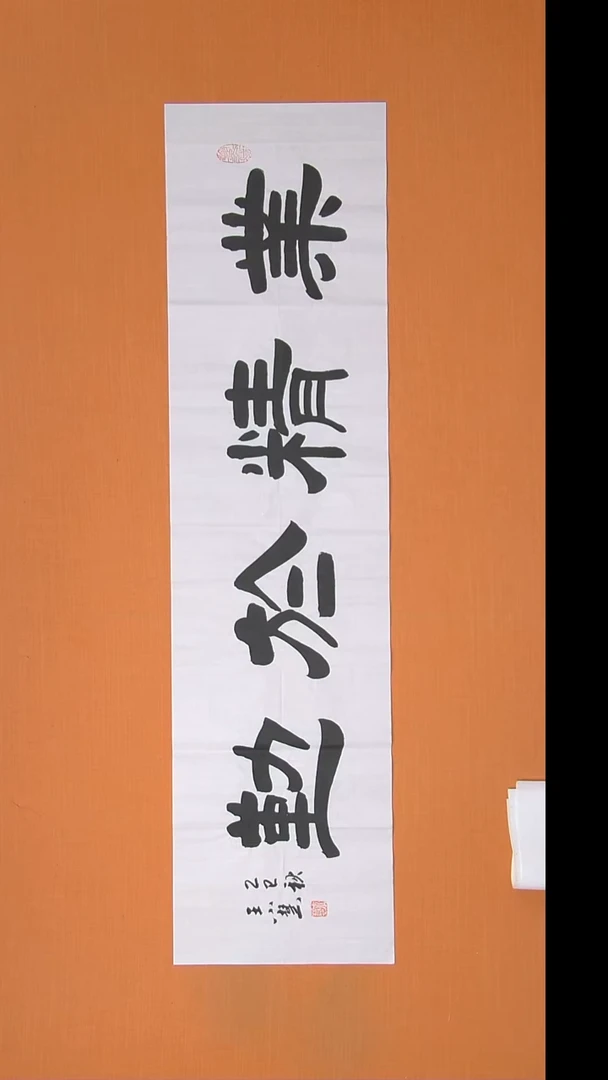 業精於勤
乙巳秋
王